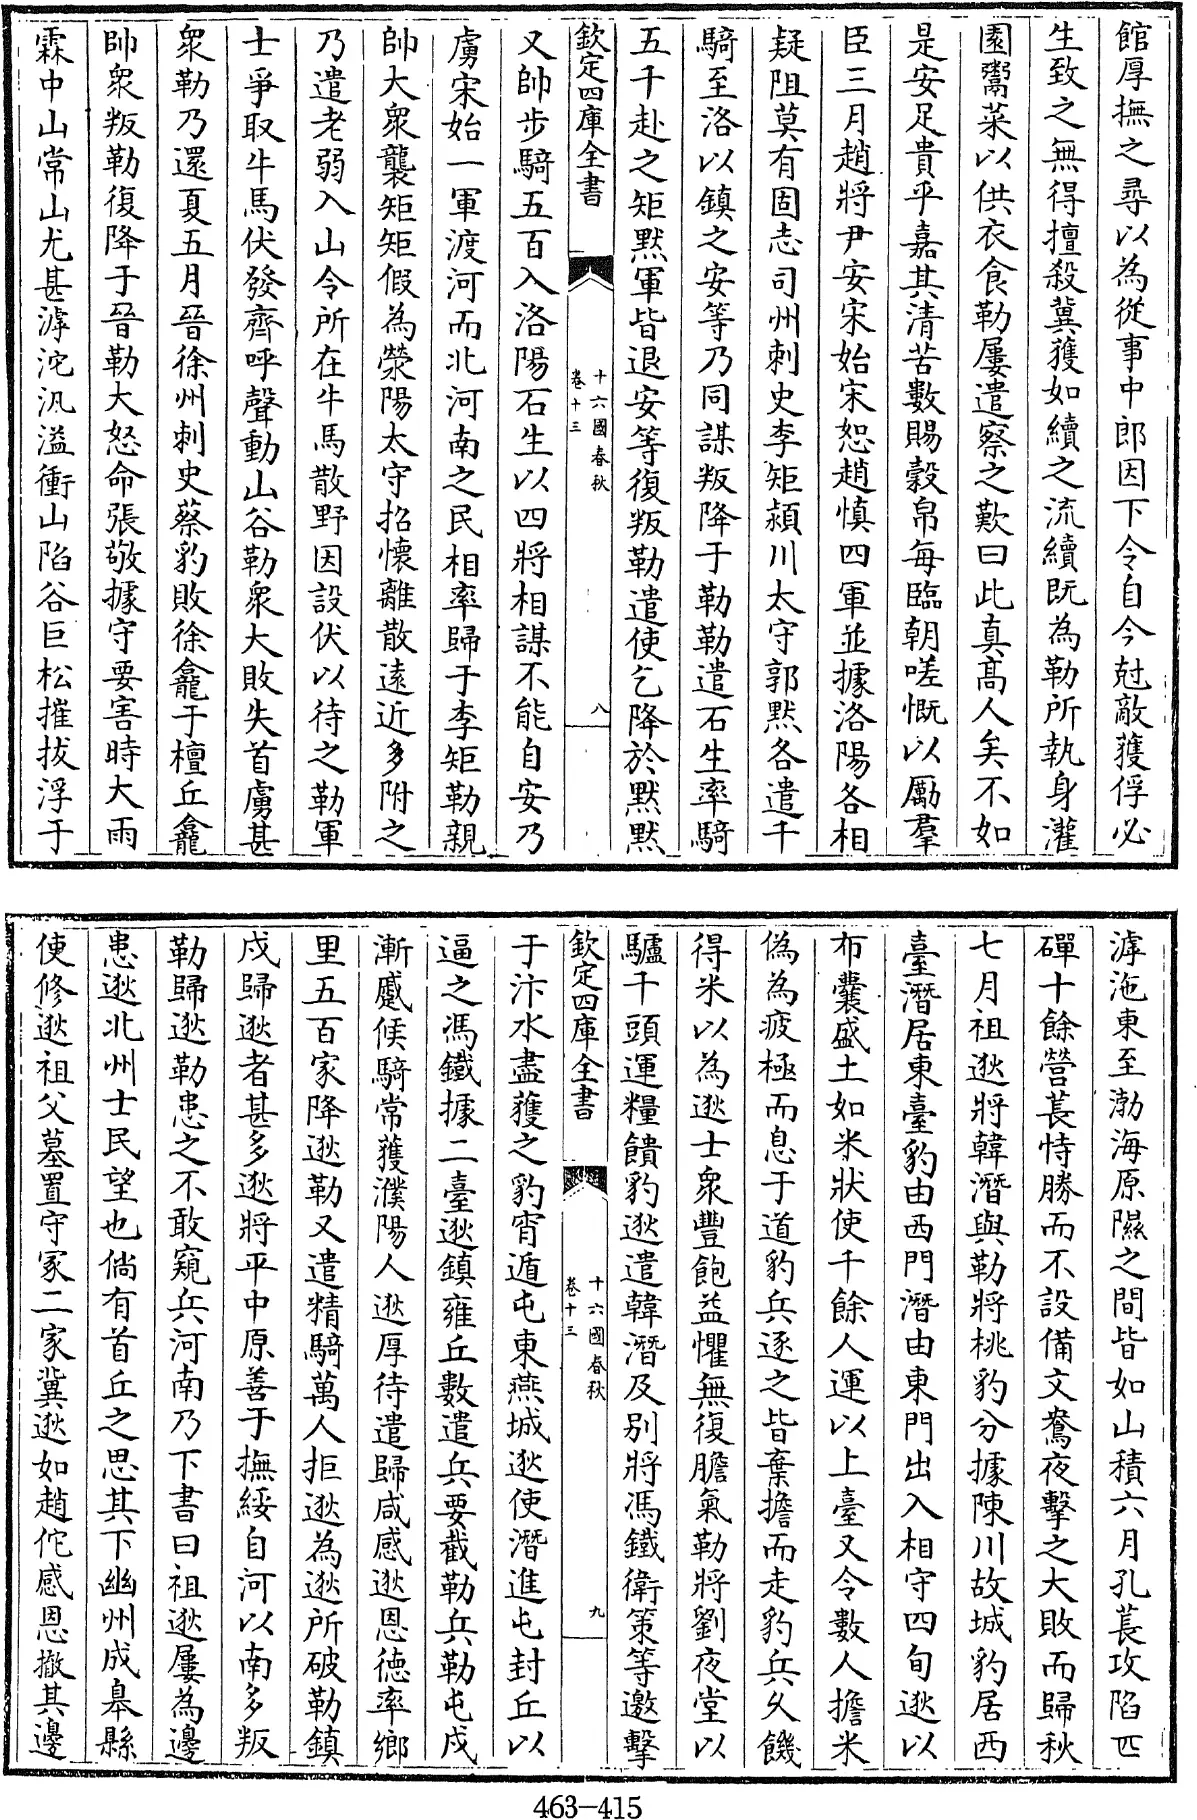 館厚撫之尋以為從事中郎因下令自今尅敵獲俘必
生致之無得擅殺冀獲如續之流續既為勒所執身灌
園鬻菜以供衣食勒屢遣察之歎曰此真髙人矣不如
是安足貴乎嘉其清苦數賜穀帛每臨朝嗟慨以厲羣
臣三月趙將尹安宋始宋恕趙慎四軍並據洛陽各相
疑阻莫有固志司州刺史李矩潁川太守郭黙各遣千
騎至洛以鎮之安等乃同謀叛降于勒勒遣石生率騎
五千赴之矩黙軍皆退安等復叛勒遣使乞降於黙黙
欽定四庫全書
十六國春秋
卷十三
八
又帥步騎五百入洛陽石生以四將相謀不能自安乃
虜宋始一軍渡河而北河南之民相率歸于李矩勒親
帥大衆襲矩矩假為滎陽太守招懷離散逺近多附之
乃遣老弱入山令所在牛馬散野因設伏以待之勒軍
士爭取牛馬伏發齊呼聲動山谷勒衆大敗失首虜甚
衆勒乃還夏五月晉徐州刺史蔡豹敗徐龕于檀丘龕
帥衆叛勒復降于晉勒大怒命張敬據守要害時大雨
霖中山常山尤甚滹沱汎溢衝山陷谷巨松摧拔浮于
滹沲東至渤海原隰之間皆如山積六月孔萇攻陷匹
磾十餘營萇恃勝而不設備文鴦夜擊之大敗而歸秋
七月祖逖將韓潛與勒將桃豹分據陳川故城豹居西
臺潛居東臺豹由西門潛由東門出入相守四旬逖以
布囊盛土如米狀使千餘人運以上臺又令數人擔米
偽為疲極而息于道豹兵逐之皆棄擔而走豹兵乆饑
得米以為逖士衆豐飽益懼無復膽氣勒將劉夜堂以
驢千頭運糧饋豹逖遣韓潛及别將馮鐵衛策等邀擊
欽定四庫全書
十六國春秋
卷十三
九
于汴水盡獲之豹宵遁屯東燕城逖使潛進屯封丘以
逼之馮鐵據二臺逖鎮雍丘數遣兵要截勒兵勒屯戍
漸蹙候騎常獲濮陽人逖厚待遣歸咸感逖恩徳率鄉
里五百家降逖勒又遣精騎萬人拒逖為逖所破勒鎮
戍歸逖者甚多逖將平中原善于撫綏自河以南多叛
勒歸逖勒患之不敢窺兵河南乃下書曰祖逖屢為邊
患逖北州士民望也倘有首丘之思其下幽州成臯縣
使修逖祖父墓置守冡二家冀逖如趙佗感恩撤其邊
463-415